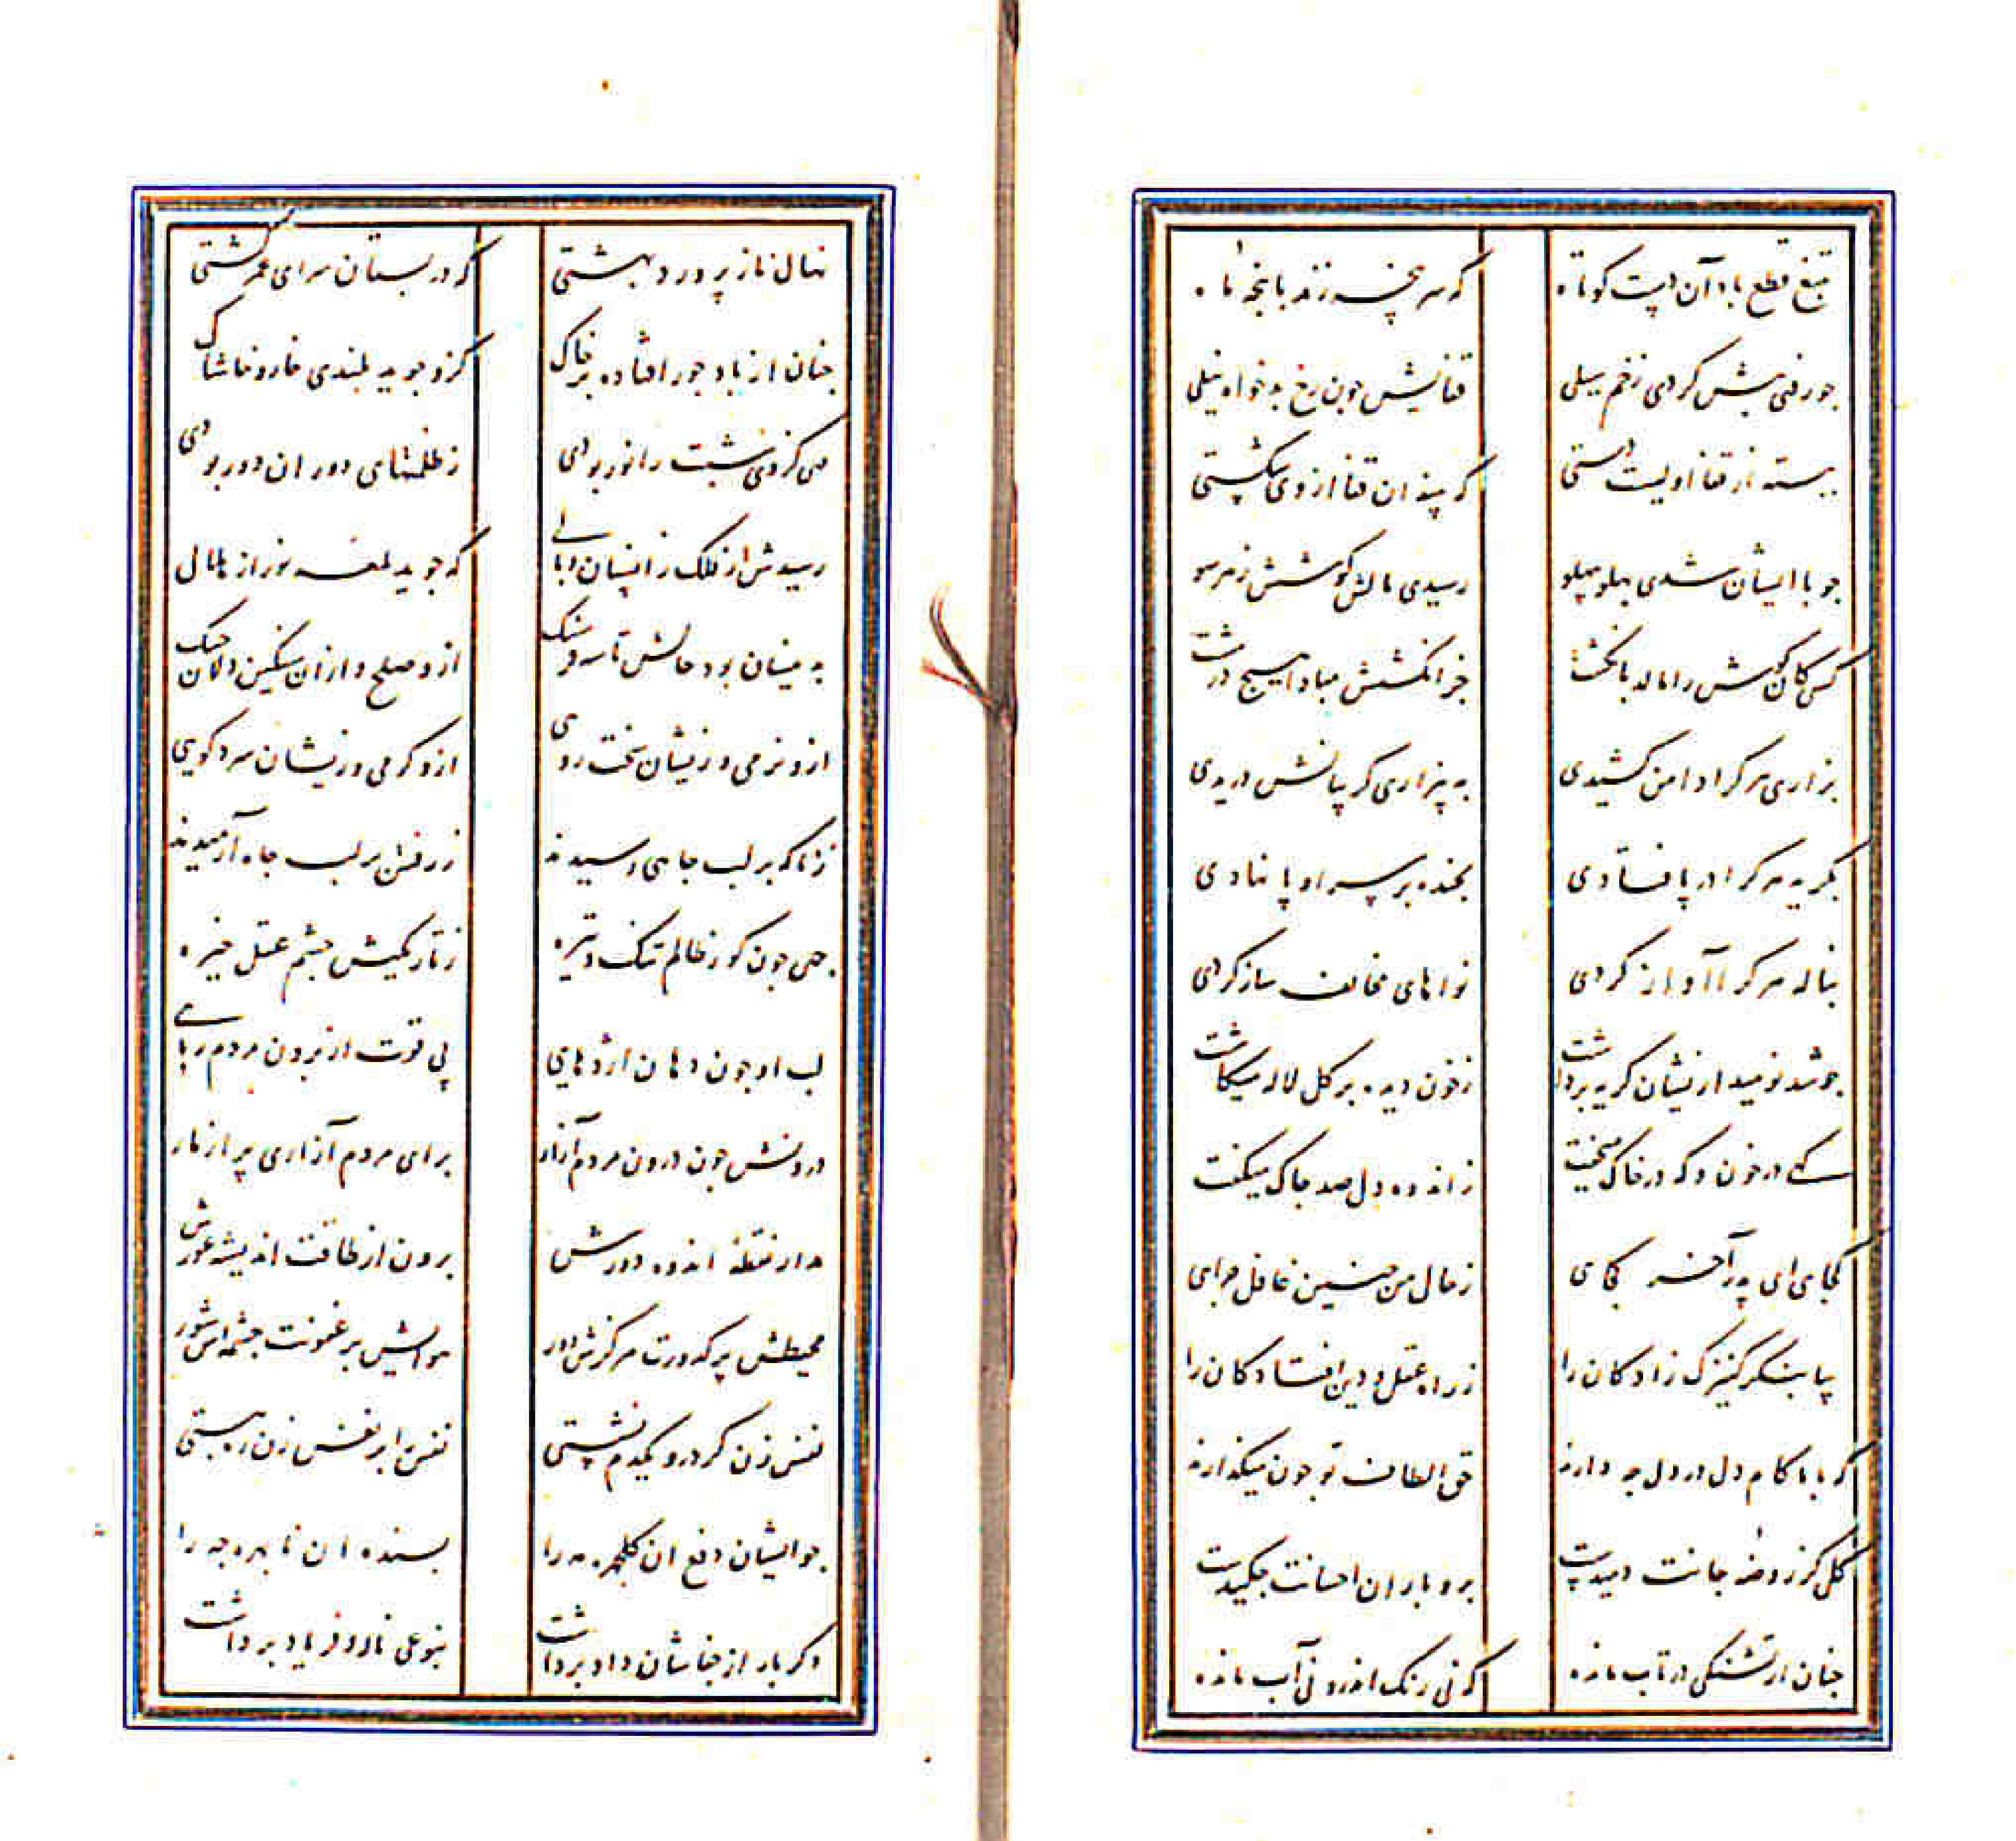 بتیغ قطع باد آن دست کوتاه که سر پنجه زند با پنجه ماه
جو رفتی پیش کردی زخم سیلی قفایش جون رخ بدخواه نیلی
ببسته از قفا اولیست دستی که پیدا ان قفا از وی شکستی
جو با ایشان شدی پهلو بپهلو رسیدی مالش کوشش ز هر سو
کسی کان کوش را مالد بانکشت جز انکشتش مبادا هیچ در مشت
بزاری هر کرا دامن کشیدی به بیزاری کریبانش دریدی
بکریه هر کرا در پا فتادی بخنده بر سر او پا نهادی
بناله هر کرا آواز کردی نواهای مخالف ساز کردی
جو شد نومید ازیشان کریه برداشت ز خون دیده بر کل لاله میکاشت
کهی در خون و که در خاک میخفت ز انده دل صد جاک میکفت
کجای ای پدر آخر کجای ز حال من جنین غافل جرای
بیا بنکر کنیزک زادکان را ز راه عقل و دین افتادکان را
که با ما کام دل در دل جه دارند حق الطاف تو جون میکذارند
کلی کز روضه جانت دمیدست برو باران احسانت جکیدست
جنان از تشنکی در تاب مانده که نی رنک اندرو نی آب مانده
نهال ناز پرورد بهشتی که در بستان سرای عمر کشتی
جنان از باد جور افتاده بر خاک کزو جوید بلندی خار و خاشاک
مهی کز وی شبت را نور بودی ز ظلمتهای دوران دور بودی
رسیدش از فلک زانسان وبالی که جوید لمعه نور از هلالی
به مینسان بود حالش تا سه فرسنک ازو صلح و ازان سنکین دلان جنک
ازو نرمی وزیشان سخت رویی ازو کرمی وزیشان سرد کویی
ز ناکه بر لب جاهی رسیدند ز رفتن بر لب جاه آرمیدند
جهی جون کور ظالم تنک و تیره ز تاریکیش جشم عقل خیره
لب او جون دهان اژدهایی پی قوت از برون مردم ربایی
درونش جون درون مردم آزار برای مردم آزاری پر از مار
مدار نقطهٔ اندوه دورش برون از طاقت اندیشه غورش
محیطش پر کدورت مرکزش دور هوایش پر عفونت جشمه‌اش شور
نفس زن کر درو یکدم نشستی نفس را بر نفس زن ره ببستی
جو ایشان دفع ان کلچهره مه را بسنده ان نابهره جه را
دکر بار از جفاشان داد برداشت بنوعی ناله و فریاد برداشت